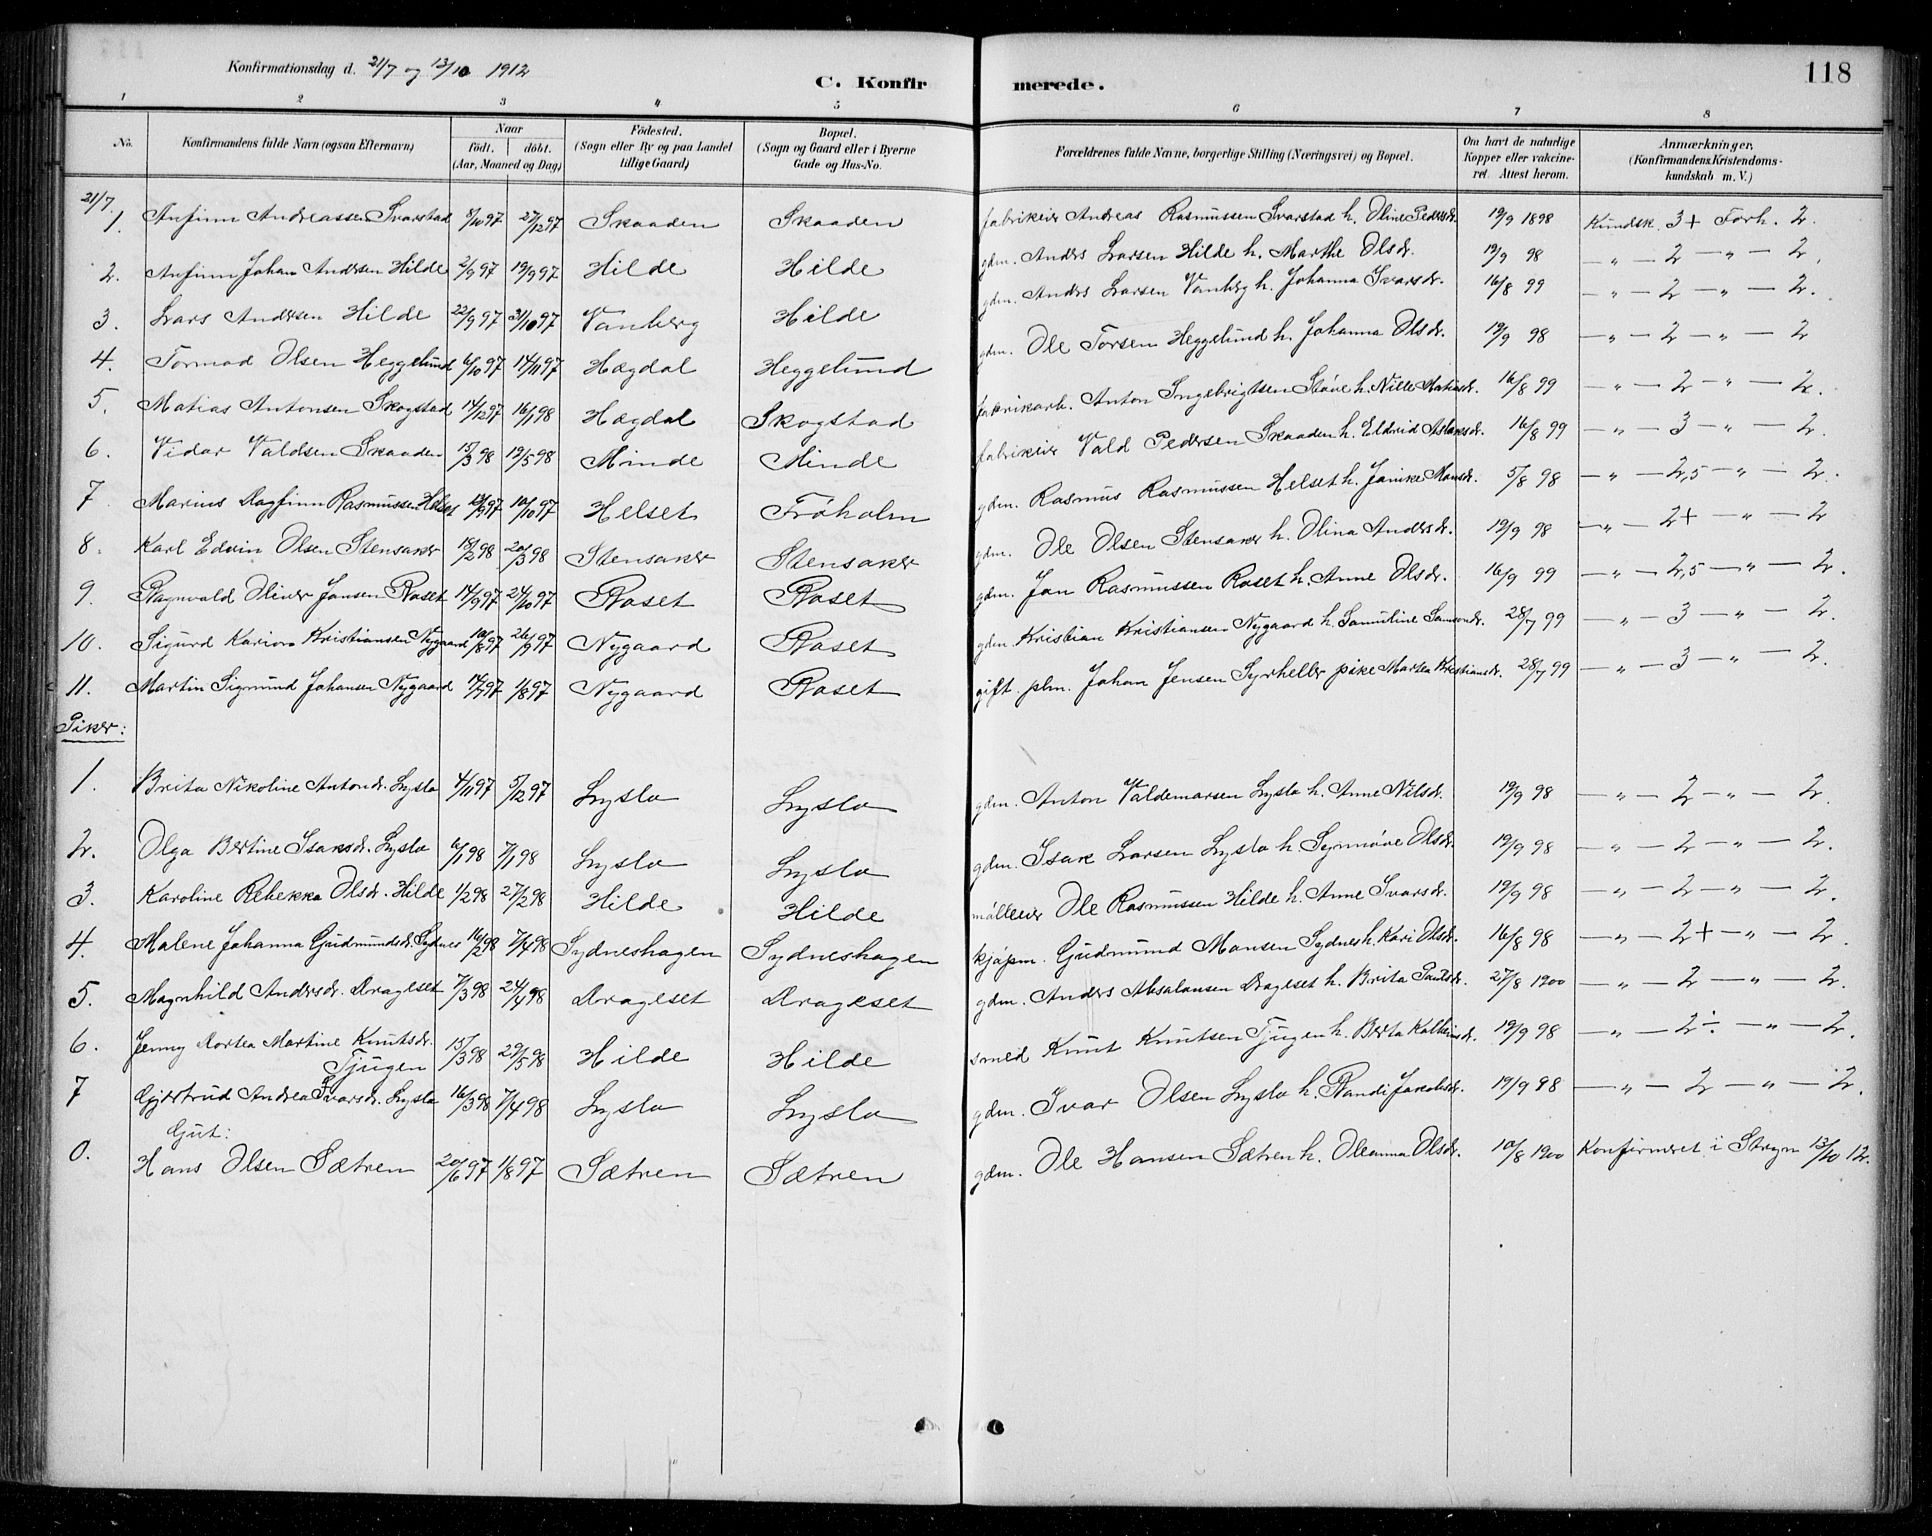 Konfirmationsdag d. 21/7 og 13/10 1912
C. Konfirmerede.
118
1 2 3 4 5 6 7 8
No. Konfirmandens fulde Navn (ogsaa Efternavn) Naar födt. döbt. (Aar, Maaned og Dag) Födested. (Sogn eller By og paa Landet tillige Gaard) Bopæl. (Sogn og Gaard eller i Byerne Gade og Hus-No. Forældrenes fulde Navne, borgerlige Stilling (Næringsvei) og Bopæl. Om havt de naturlige Kopper eller vakcineret. Attest herom. Anmærkninger. (Konfirmandens Kristendomskundskab m. V.)
21/7.
1. Anfinn Andreassen Svarstad 8/10 97 27/12 97 Skaaden Skaaden fabrikeier Andreas Rasmussen Svarstad h. Oline Pedersdr. 19/9 1898 Kundsk. 3+ Forh. 2.
2. Anfinn Johan Andersen Hilde 2/9 97 19/9 97 Hilde Hilde gdm. Anders Larsen Hilde h. Marthe Olsdr. 19/9 98 — „ — 2 — „ — 2.
3. Lars Andersen Hilde 22/9 97 31/10 97 Vanberg Hilde gdm. Anders Larsen Vanberg h. Johanna Ivarsdr. 16/8 99 — „ — 2 — „ — 2.
4. Tormod Olsen Heggelund 6/10 97 14/11 97 Hægdal Heggelund gdm. Ole Torsen Heggelund h. Johanna Olsdr. 19/9 98 — „ — 2 — „ — 2
5. Matias Antonsen Skogstad 14/12 97 16/1 98 Hægdal Skogstad fabrikarb. Anton Ingebrigtsen Støve h. Nille Matiasdr. 16/8 99 — „ — 2 — „ — 2.
6. Vidar Valdsen Skaaden 15/3 98 19/5 98 Minde Minde fabrikeier Vald Pedersen Skaaden h. Eldrid Aslaksdr. 16/8 99 — „ — 3 — „ — 2.
7 Marius Dagfinn Rasmussen Helset 97 10/10 97 Helset Fröholm gdm. Rasmus Rasmussen Helset h. Janike Monsdr. 5/8 98 — „ — 2,5 — „ — 2.
8. Karl Edvin Olsen Stensaker 15/2 98 20/3 98 Stensaker Stensaker gdm. Ole Olsen Stensaker h. Olina Andersdr. 19/9 98 — „ — 2+ — „ — 2
9. Ragnvald Oliver Jansen Roset 14/9 97 24/10 97 Roset Roset gdm. Jan Rasmussen Roset h. Anne Olsdr. 16/9 99 — „ — 2,5 — „ — 2.
10. Sigurd Karion Kristiansen Nygaard 10/8 97 26/9 97 Nygaard Roset gdm. Kristian Kristiansen Nygaard h. Samuline Samsondr. 28/7 99 — „ — 3 — „ — 2.
11. Martin Sigmund Johansen Nygaard 14/7 97 1/8 97 Nygaard Roset gift. plm. Johan Jensen Syrheller pike Martea Kristiansdr. 28/7 99 — „ — 3 — „ — 2.
Piker:
1. Brita Nikoline Antondr. Lyslo 4/11 97 5/12 97 Lyslo Lyslo gdm. Anton Valdemarsen Lyslo h. Anne Nilsdr. 19/9 98 — „ — 2 — „ — 2.
2. Olga Bertine Isaksdr. Lyslo 6/1 98 7/1 98 Lyslo Lyslo gdm. Isak Larsen Lyslo h. Synnöve Olsdr. 19/9 98 — „ — 2 — „ — 2.
3. Karoline Rebekka Olsdr. Hilde 1/2 98 27/2 98 Hilde Hilde mölleeier Ole Rasmussen Hilde h. Anne Ivarsdr. 19/9 98 — „ — 2 — „ — 2.
4. Malene Johanna Gudmundsdr. Sydnes 16/2 98 7/4 98 Sydneshagen Sydneshagen kjöpm. Gudmund Monsen Sydnes h. Kari Olsdr. 16/8 98 — „ — 2+ — „ — 2.
5. Magnhild Andersdr. Drageset 7/3 98 24/4 98 Drageset Drageset gdm. Anders Absalonsen Drageset h. Brita Paulsdr. 27/8 1900 — „ — 2 — „ — 2.
6. Jenny Dortea Martine Knutsdr. Tjugen 15/3 98 29/5 98 Hilde Hilde smed Knut Knutsen Tjugen h. Berta Kolbeinsdr. 19/9 98 — „ — 2÷ — „ — 2.
7 Gjertrud Andrea Ivarsdr. Lyslo 16/3 98 7/4 98 Lyslo Lyslo gdm. Ivar Olsen Lyslo h. Randi Jakobsdr. 19/9 98 — „ — 2 — „ — 2.
Gut:
0. Hans Olsen Sætren 20/6 97 1/8 97 Sætren Sætren gdm. Ole Hansen Sætren h. Oleanna Olsdr. 10/8 1900 Konfirmeret i Stryn 13/10 12.